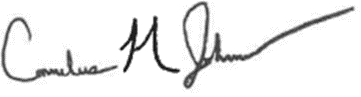 Cornelius M Johnson